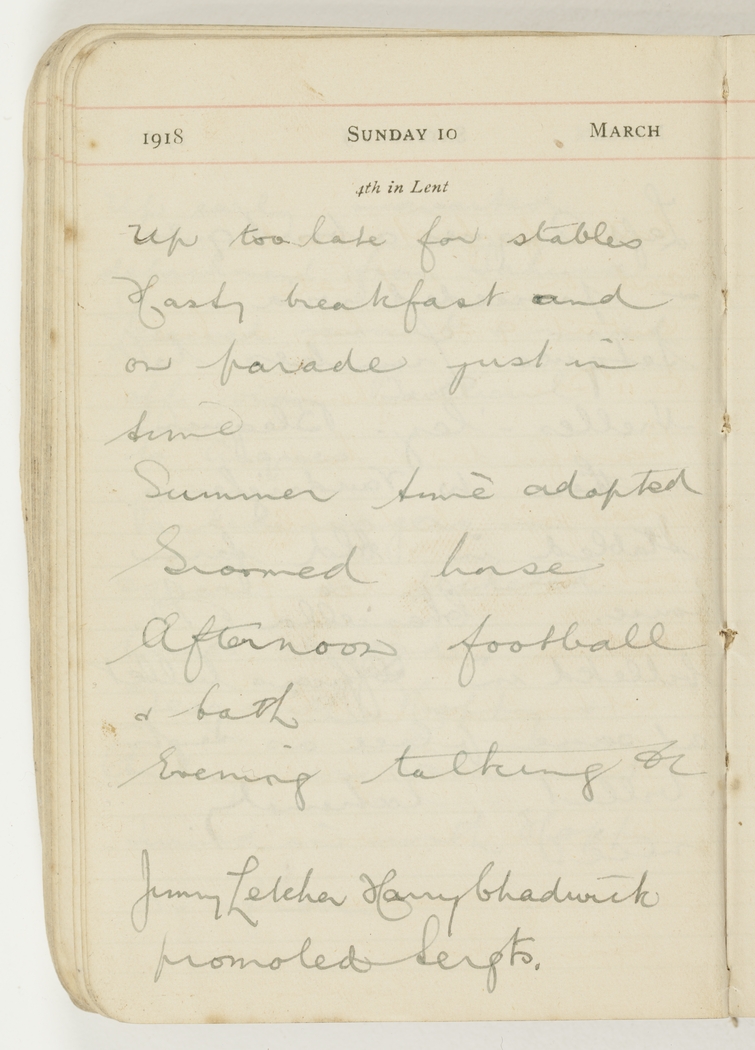 1918 SUNDAY 10 MARCH
4th in Lent
Up too late for stables
Hasty breakfast and
on parade just in
time
Summer time adopted
Groomed horse
Afternoon football
& bath
Evening talking &c
Jimmy Letcher Harry Chadwick
promoted Sergts.